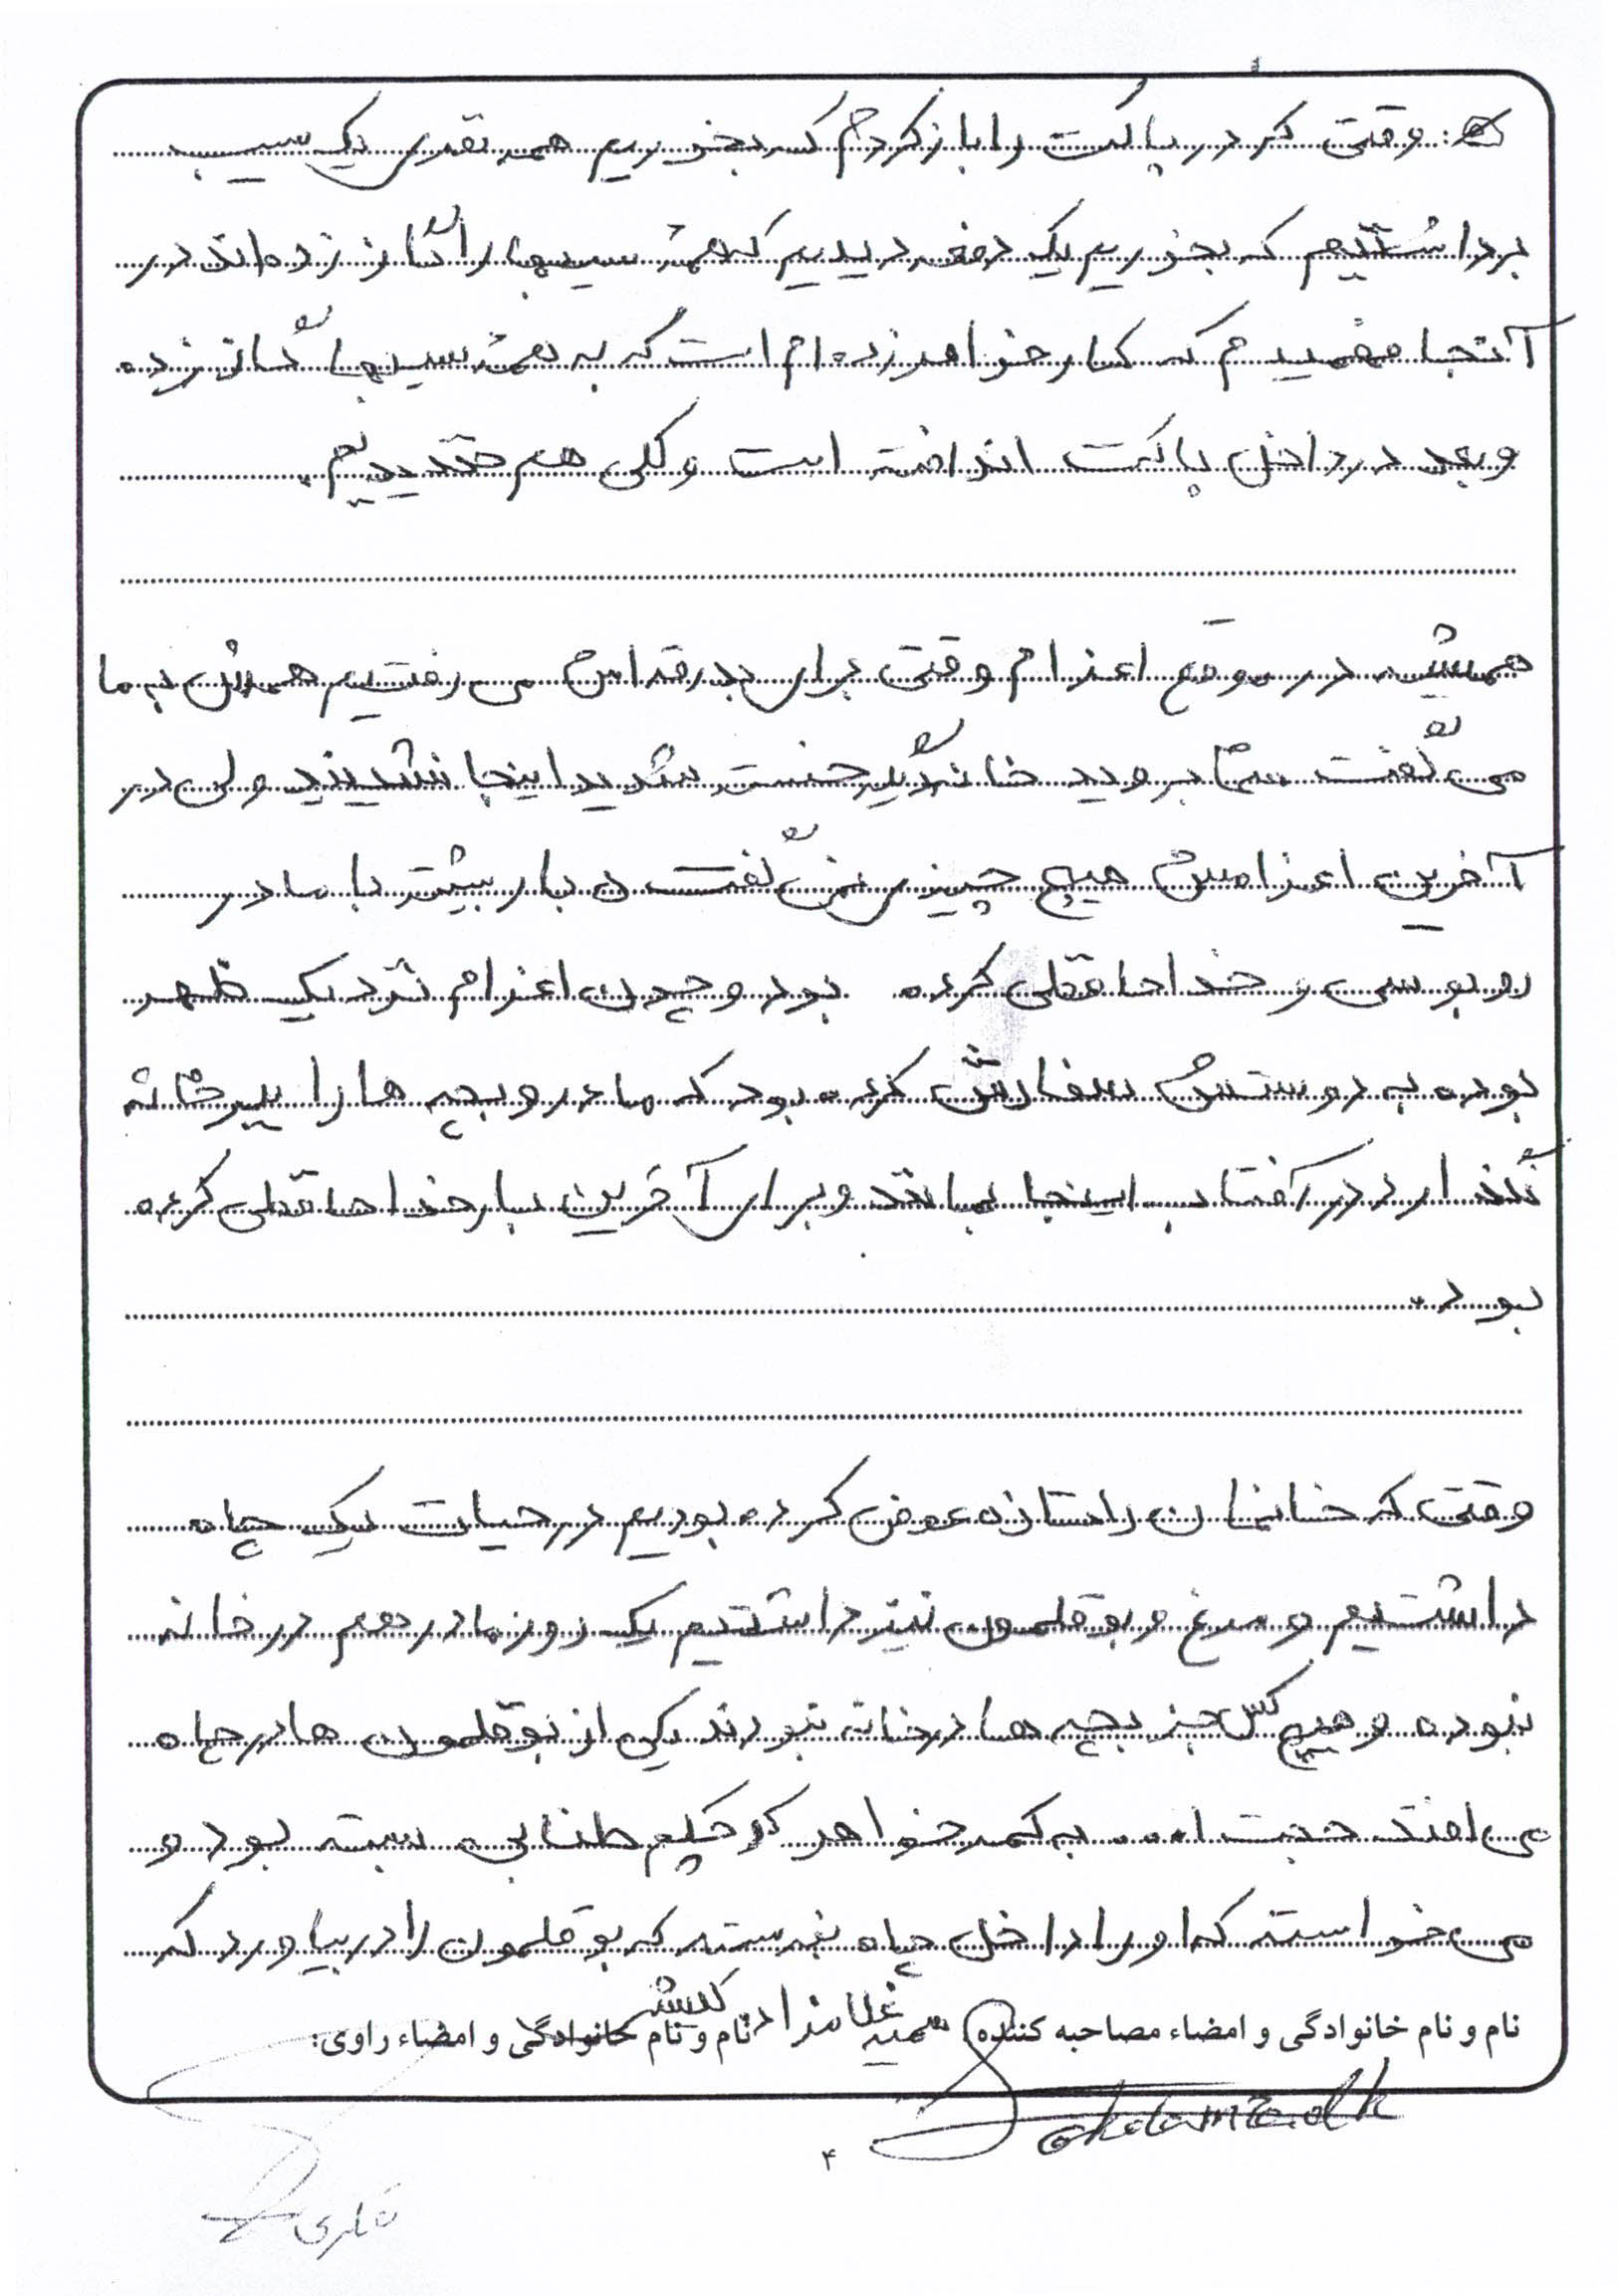 وقتی که در پاکت را باز کردم که بخوریم همه نفری یک سیب
برداشتیم که بخوریم یک دفعه دیدیم که همه سیبها را گاز زده اند در
آنجا فهمیدم که کار خواهرزده ام است که به همه سیبها گاز زده
و بعد در داخل پاکت انداخته است و کلی هم خندیدیم.
همیشه در موقع اعزام وقتی برای بدرقه اش می رفتیم همش به ما
می گفت شما بروید خانه دیگر خسته شدید اینجا نشینید ولی در
آخرین اعزامش هیچ چیزی نمی گفت و بار بیشتر با مادر
روبوسی و خداحافظی کرده بود و چون اعزام نزدیک ظهر
بوده به دوستش سفارش کرده بود که مادر و بچه ها را ببر خانه
نگذار در آفتاب اینجا بمانند و برای آخرین بار خداحافظی کرده
بود.
وقتی که خانمان را تازه عوض کرده بودیم در حیات یک چاه
داشتیم و مرغ و بوقلمون نیز داشتیم یک روز مادرم هم در خانه
نبوده و هیچ کس جز بچه ها در خانه نبودند یکی از بوقلمون ها در چاه
می افتد حجت ا... به کمر خواهر کوچکم طنابی بسته بود و
می خواسته که او را داخل چاه بفرسته که بوقلمون را در بیاورد که
نام و نام خانوادگی و امضاء مصاحبه کننده سمیه غلامزاده نام و نام خانوادگی و امضاء راوی:
۴